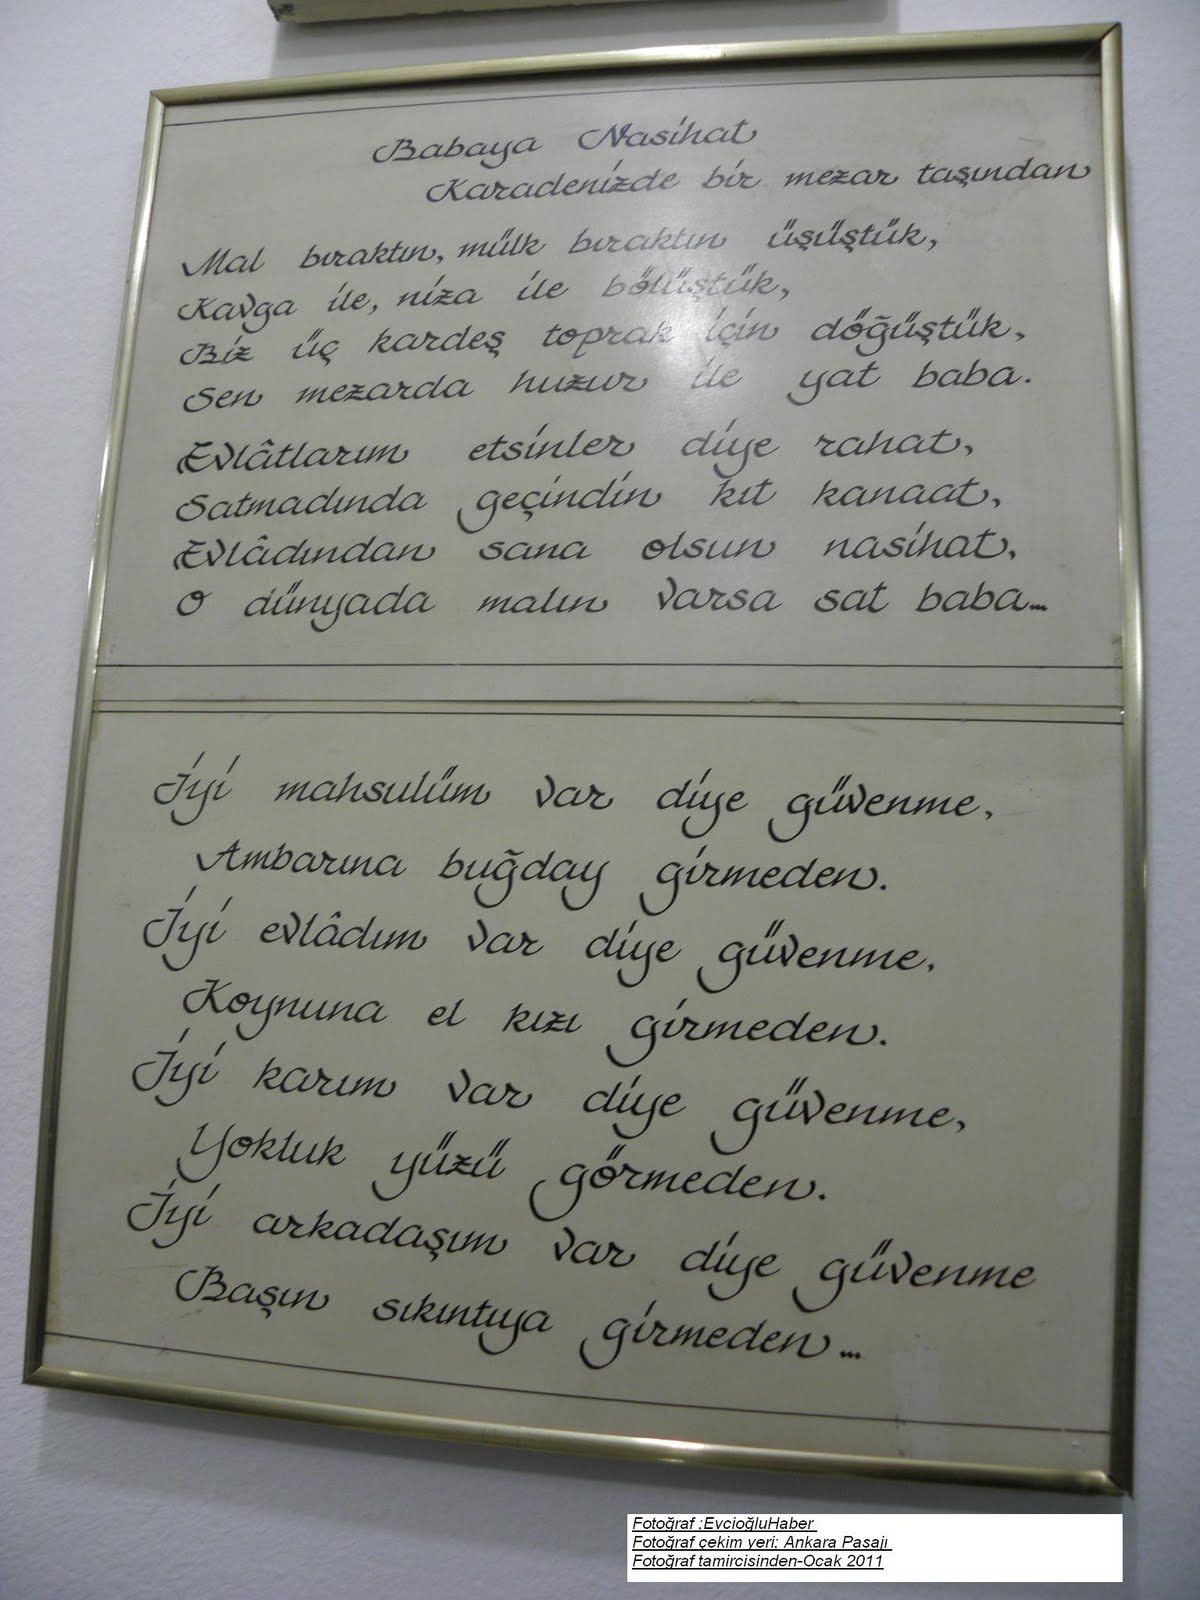 Babaya Nasihat
Karadenizde bir mezar taşından
Mal bıraktın, mülk bıraktın üşüştük,
Kavga ile, niza ile bölüştük,
Biz üç kardeş toprak için döğüştük,
Sen mezarda huzur ile yat baba.
Evlâtlarım etsinler diye rahat,
Satmadında geçindin kıt kanaat,
Evlâdından sana olsun nasihat,
O dünyada malın varsa sat baba...
İyi mahsulüm var diye güvenme,
Ambarına buğday girmeden.
İyi evlâdım var diye güvenme,
Koynuna el kızı girmeden.
İyi karım var diye güvenme,
Yokluk yüzü görmeden.
İyi arkadaşım var diye güvenme
Başın sıkıntıya girmeden...
Fotoğraf :EvcioğluHaber
Fotoğraf çekim yeri: Ankara Pasajı
Fotoğraf tamircisinden-Ocak 2011